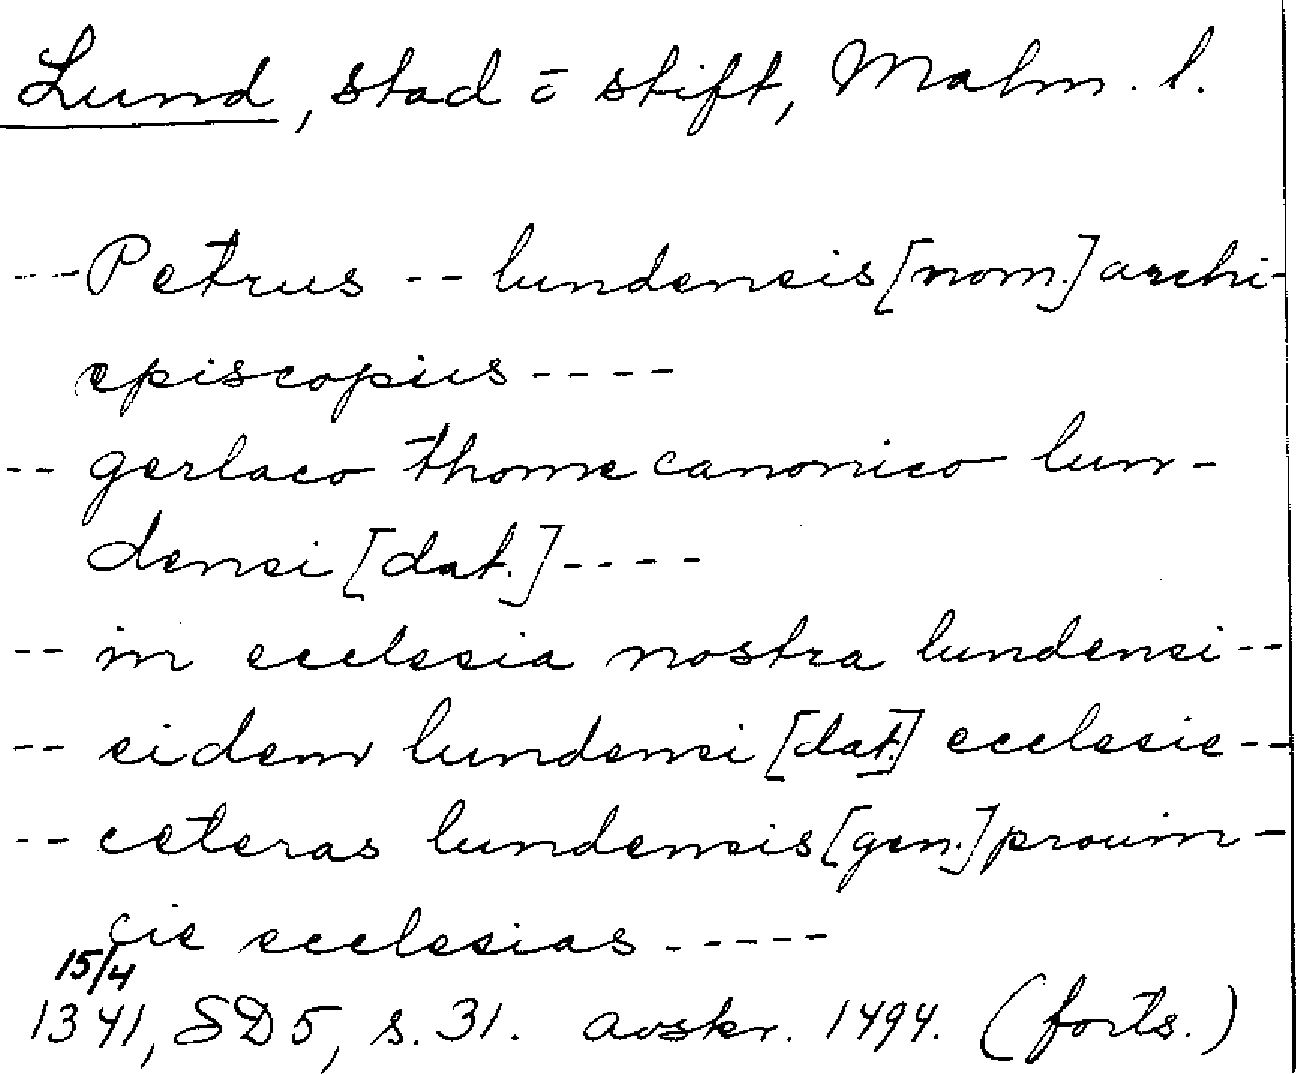 Lund, stad o stift, Malm. l.
--- Petrus -- lundensis [nom.] archi-
episcopus ----
-- gerlaco thome canonico lun-
densi [dat.] ----
-- in ecclesia nostra lundensi --
-- eidem lundensi [dat.] ecclesie --
-- ceteras lundensis [gen.] prouin-
cie ecclesias -----
15/4
1341, SD 5, s. 31. avskr. 1494. (forts.)